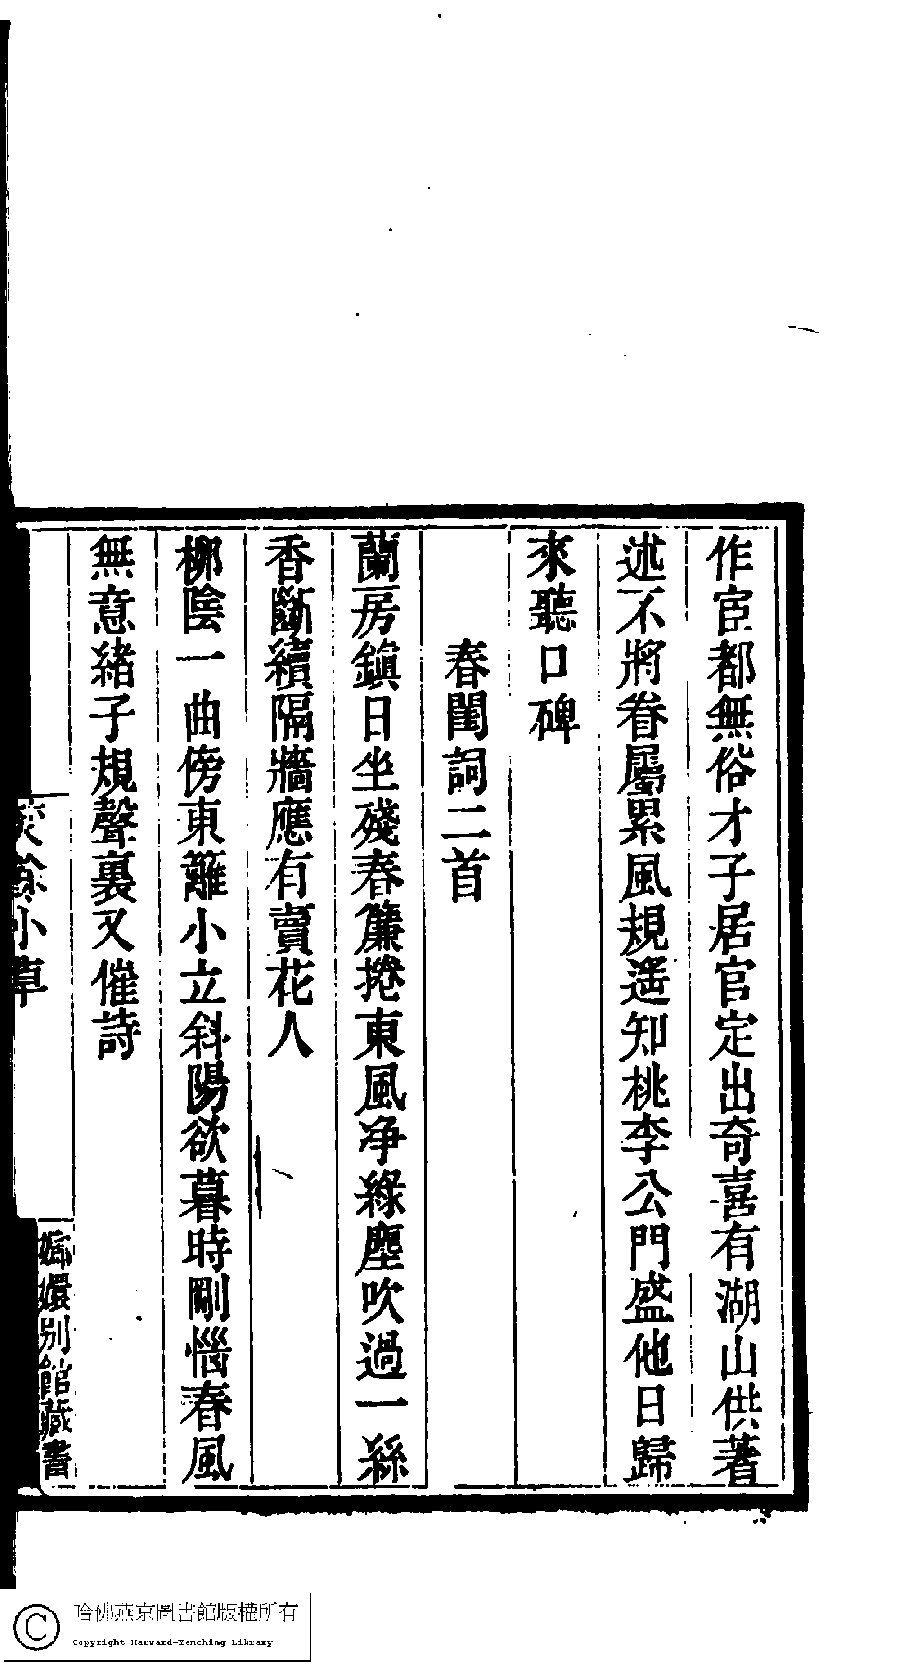 作宦都無俗才子居官定出奇喜有湖山供著
述不將眷屬累風規遥知桃李公門盛他日歸
來聽口碑
春閨詞二首
蘭房鎮日坐殘春簾捲東風净綠塵吹過一絲
香斷續隔牆應有賣花人
柳陰一曲傍東籬小立斜陽欲暮時剛惱春風
無意緒子規聲裏又催詩
餘小草
嫏嬛別館藏書
哈佛燕京圖書館版權所有
Copyright Harvard-Yenching Library